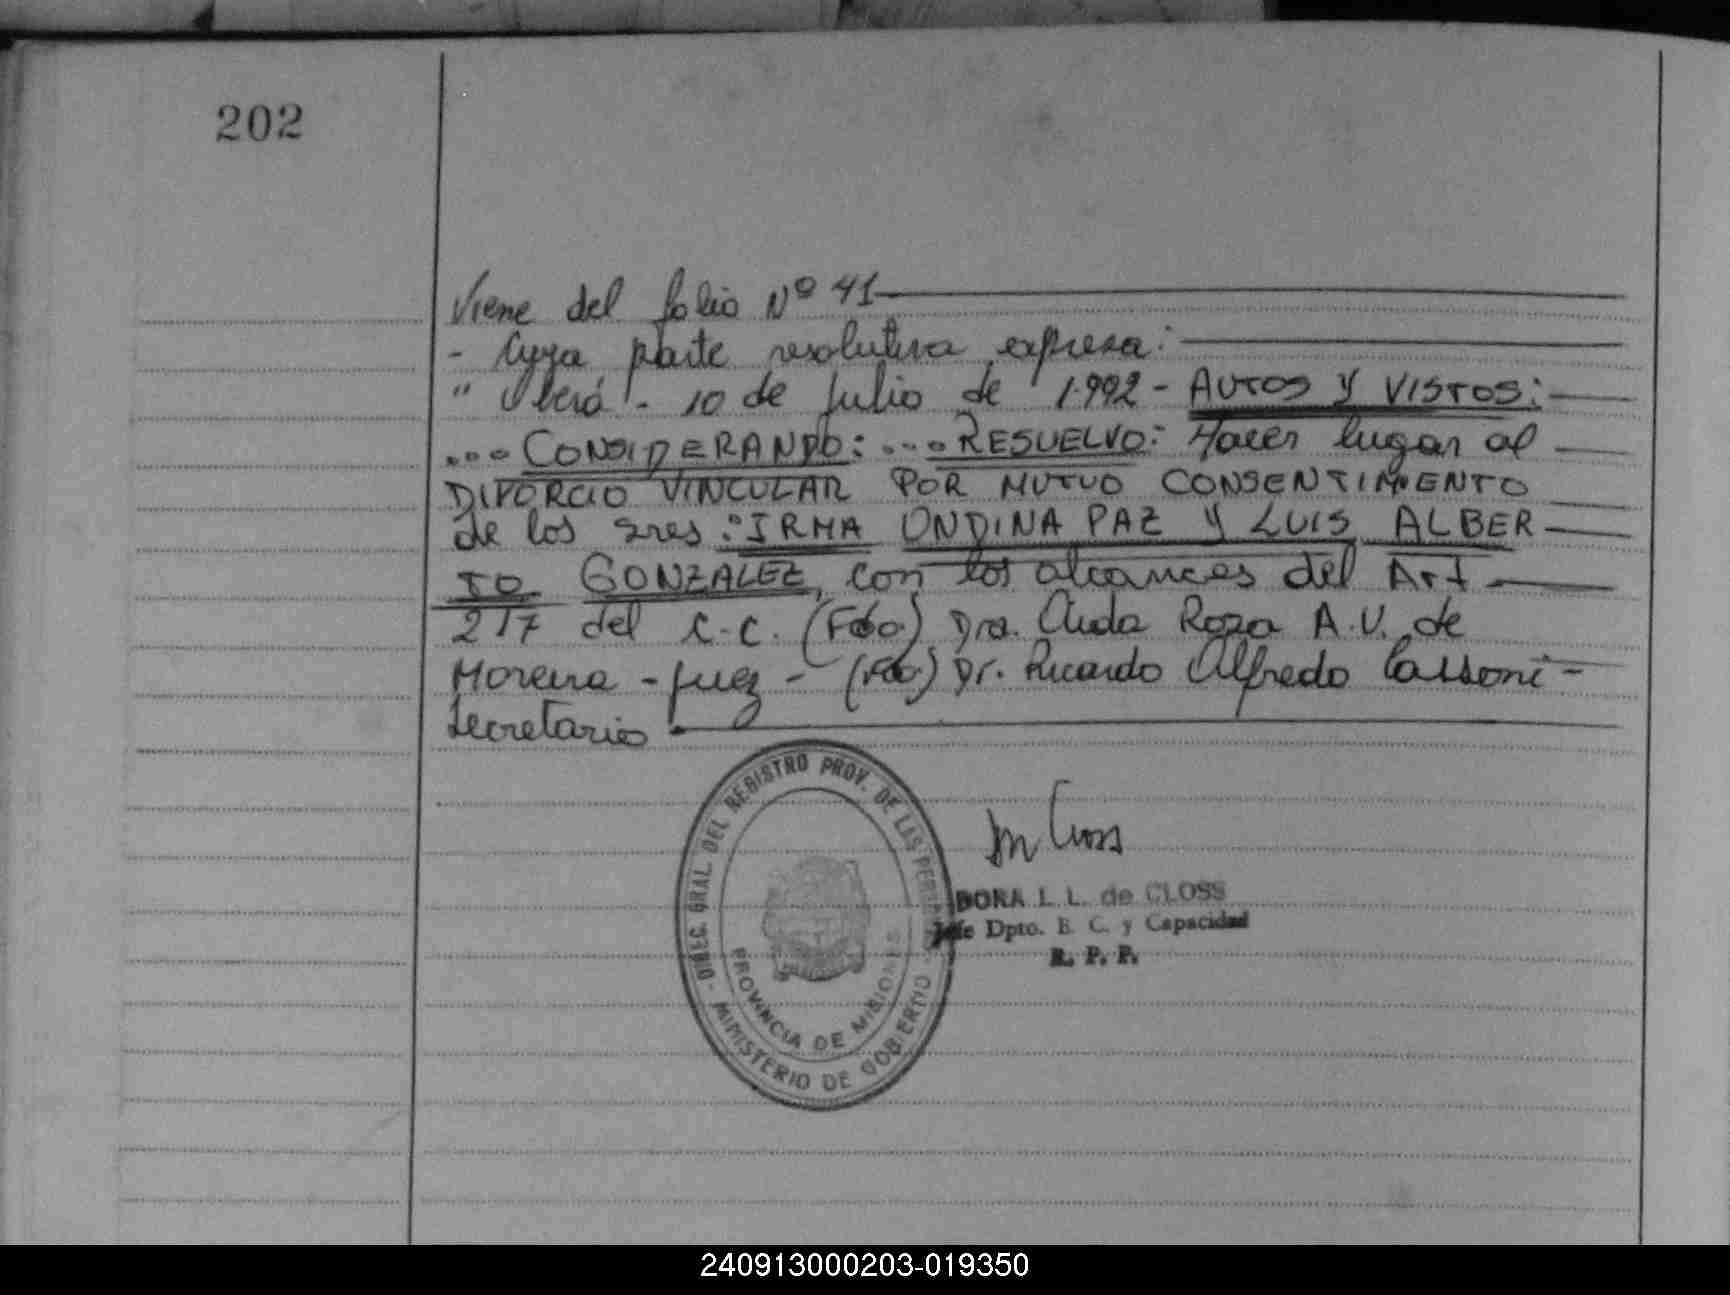 202
Viene del folio Nº 41
- Cuya parte resolutiva expresa:
" Oberá - 10 de Julio de 1.992 - AUTOS Y VISTOS:
... CONSIDERANDO: ... RESUELVO: Hacer lugar al
DIVORCIO VINCULAR POR MUTUO CONSENTIMIENTO
de los sres: IRMA ONDINA PAZ Y LUIS ALBER
TO GONZALEZ, con los alcances del Art
217 del C.C. (Fdo) Dra. Rosa A.V. de
Moreira - Juez - (Fdo) Dr. Ricardo Alfredo Cassoni -
Secretario
DIREC. GRAL. DEL REGISTRO PROV. DE LAS
PROVINCIA DE MISIONES
- MINISTERIO DE GOBIERNO -
DORA L. L. de CLOSS
Jefe Dpto. E. C. y Capacidad
R. P. P.
240913000203-019350